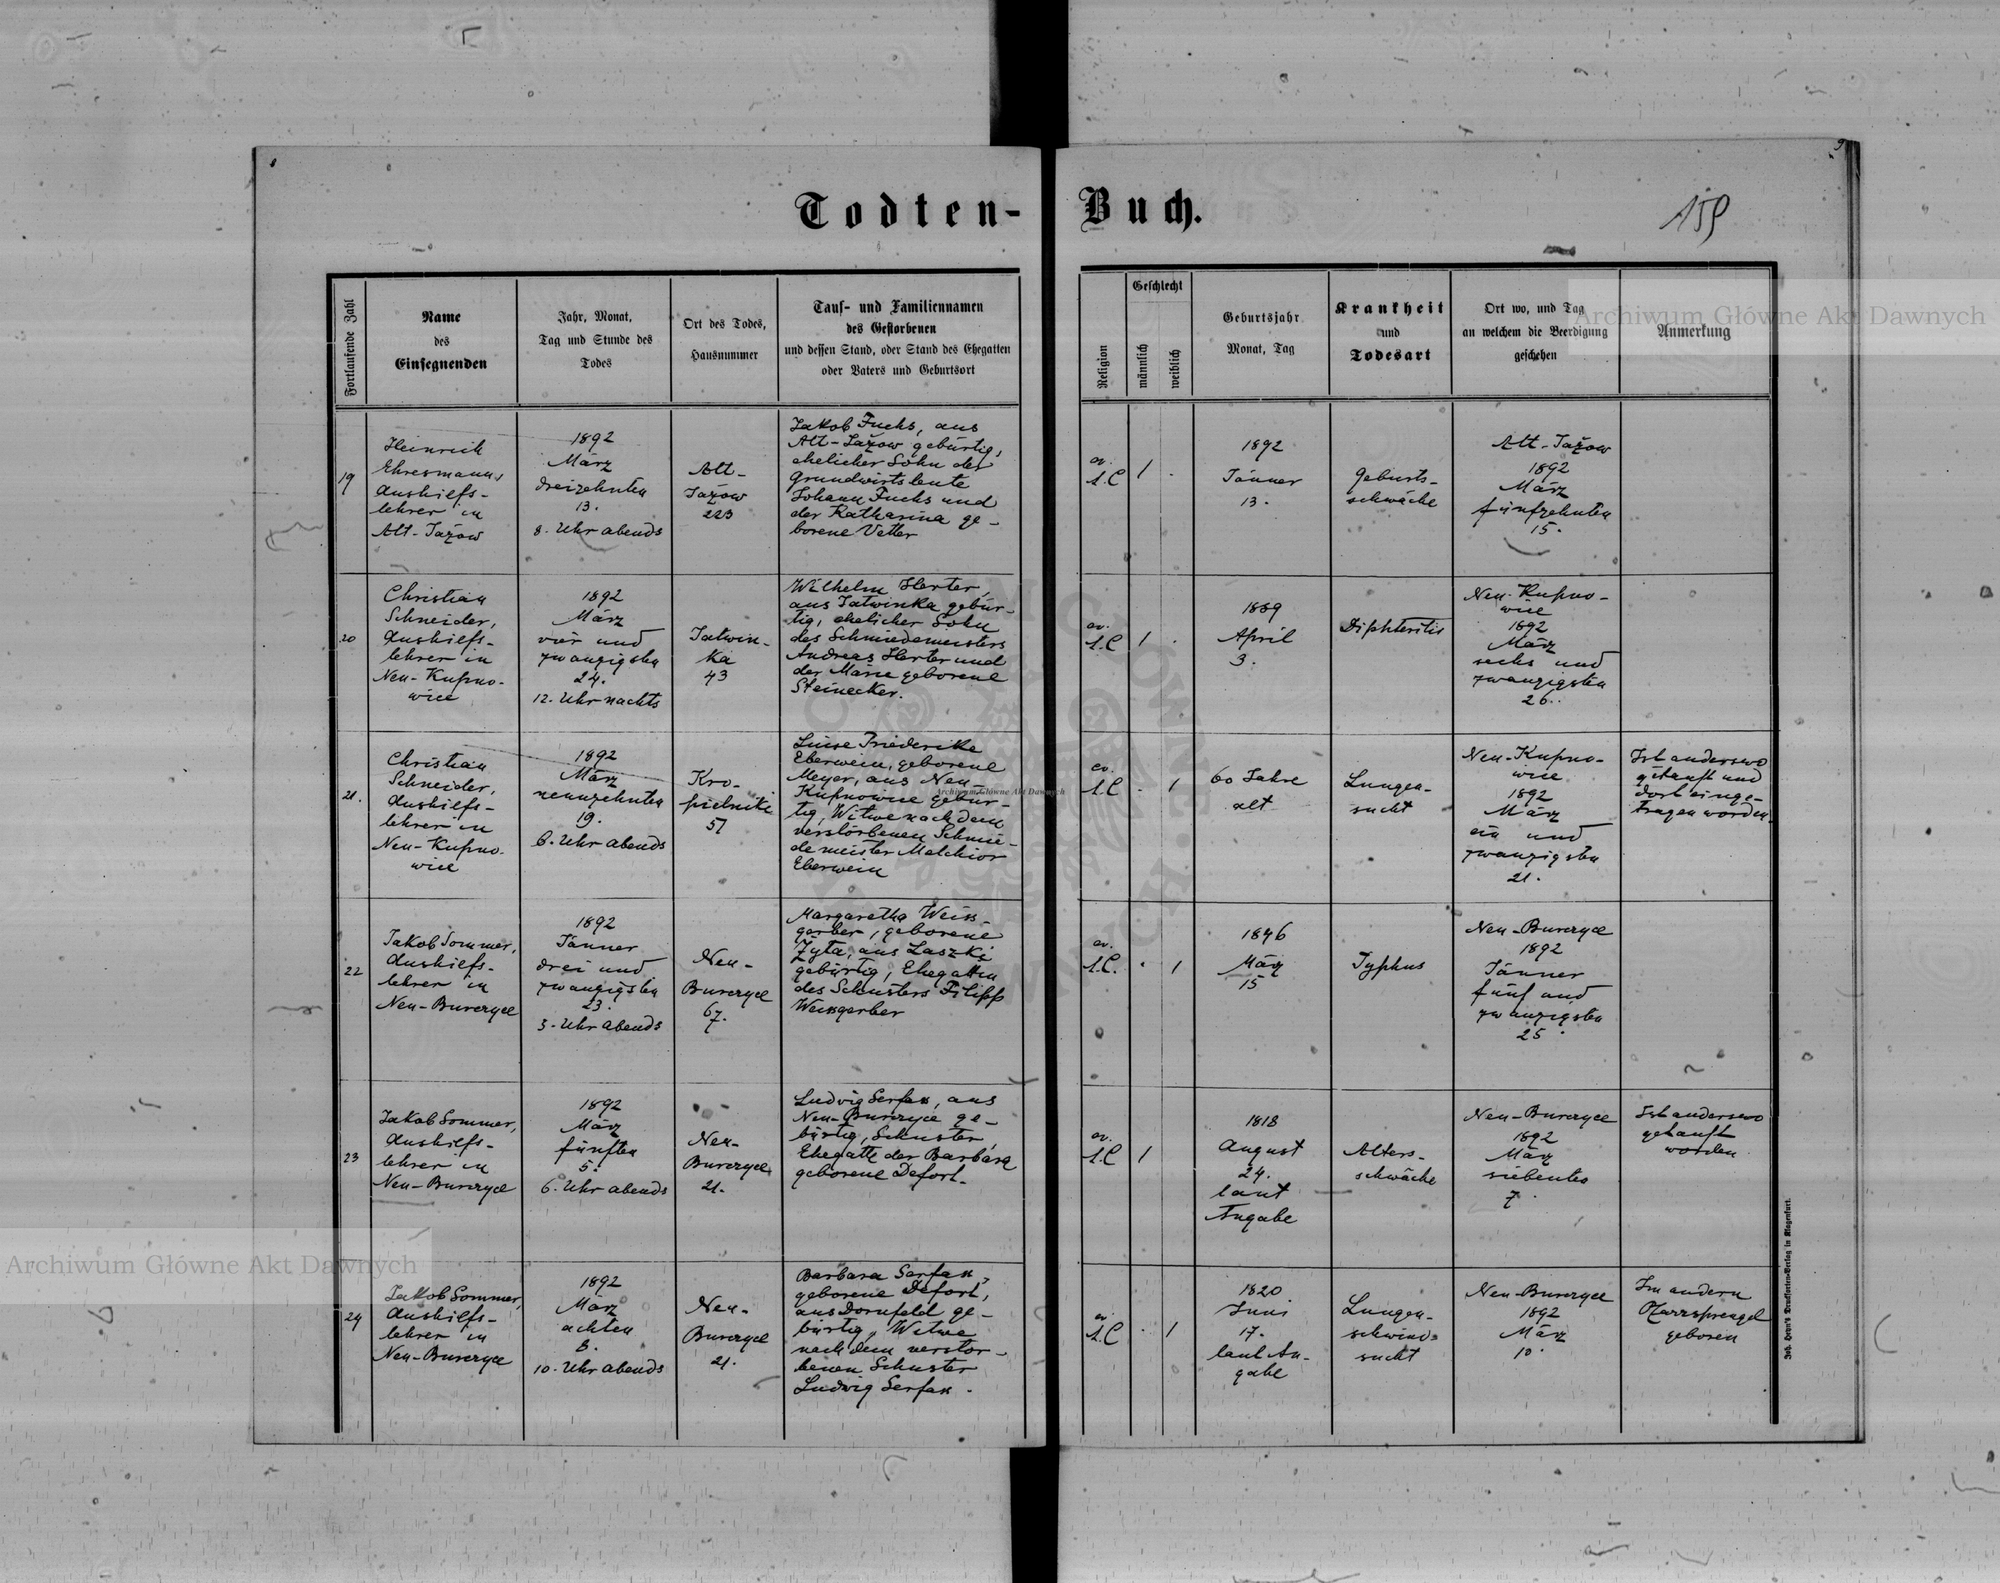 Todten-
Buch.
159
Fortlaufende Zahl
Name
des
Einsegnenden
Jahr, Monat,
Tag und Stunde des
Todes
Ort des Todes,
Hausnummer
Tauf- und Familiennamen
des Gestorbenen
und dessen Stand, oder Stand des Ehegatten
oder Vaters und Geburtsort
Religion
Geschlecht
männlich
weiblich
Geburtsjahr
Monat, Tag
Krankheit
und
Todesart
Ort wo, und Tag
an welchem die Beerdigung
geschehen
Anmerkung
19
Heinrich
Ehresmann,
Aushilfs-
lehrer in
Alt-Jażow
1892
März
dreizehnten
13.
8. Uhr abends
Alt-
Jażow
223
Jakob Fuchs, aus
Alt-Jażow gebürtig,
ehelicher Sohn der
Grundwirtsleute
Johann Fuchs und
der Katharina ge-
borene Vetter
ev.
A.C
1
1892
Jänner
13.
Geburts-
schwäche
Alt-Jażow
1892
März
fünfzehnten
15.
20
Christian
Schneider,
Aushilfs-
lehrer in
Neu-Kupno-
wice
1892
März
vier und
zwanzigsten
24.
12. Uhr nachts
Jatwin-
ka
43
Wilhelm Herter,
aus Jatwinka gebür-
tig, ehelicher Sohn
des Schmiedemeisters
Andreas Herter und
der Marie geborene
Steinecker.
ev.
A.C
1
1889
April
3.
Diphteritis
Neu-Kupno-
wice
1892
März
sechs und
zwanzigsten
26.
21.
Christian
Schneider,
Aushilfs-
lehrer in
Neu-Kupno-
wice
1892
März
neunzehnten
19.
6. Uhr abends
Kro-
pielniki
57
Luise Friederike
Eberwein, geborene
Meyer, aus Neu
Kupnowice gebür-
tig, Witwe nach dem
verstorbenen Schmie-
demeister Melchior
Eberwein
ev.
A.C
1
60 Jahre
alt
Lungen-
sucht
Neu-Kupno-
wice
1892
März
ein und
zwanzigsten
21.
Ist anderswo
getauft und
dort einge-
tragen worden.
22
Jakob Sommer,
Aushilfs-
lehrer in
Neu-Burczyce
1892
Jänner
drei und
zwanzigsten
23.
3. Uhr abends
Neu-
Burczyce
67.
Margaretha Weiss-
gerber, geborene
Zyta, aus Laszki
gebürtig, Ehegattin
des Schusters Filipp
Weissgerber
ev.
A.C.
1
1846
März
15
Typhus
Neu-Burczyce
1892
Jänner
fünf und
zwanzigsten
25.
23
Jakob Sommer,
Aushilfs-
lehrer in
Neu-Burczyce
1892
März
fünften
5.
6. Uhr abends
Neu-
Burczyce
21.
Ludwig Serfas, aus
Neu-Burczyce ge-
bürtig, Schuster,
Ehegatte der Barbara
geborene Defort.
ev.
A.C
1
1818
August
24.
laut
Angabe
Alters-
schwäche
Neu-Burczyce
1892
März
siebentes
7.
Ist anderswo
getauft
worden
24
Jakob Sommer,
Aushilfs-
lehrer in
Neu-Burczyce
1892
März
achten
8.
10. Uhr abends
Neu-
Burczyce
21.
Barbara Serfas,
geborene Defort,
aus Dornfeld ge-
bürtig, Witwe
nach dem verstor-
benen Schuster
Ludwig Serfas.
ev
A.C
1
1820
Juni
17.
laut An-
gabe
Lungen-
schwind-
sucht
Neu-Burczyce
1892
März
10.
Im andern
Pfarrsprengel
geboren
Joh. Heyn's Drucksorten-Verlag in Klagenfurt.
Archiwum Główne Akt Dawnych
Archiwum Główne Akt Dawnych
Archiwum Główne Akt Dawnych